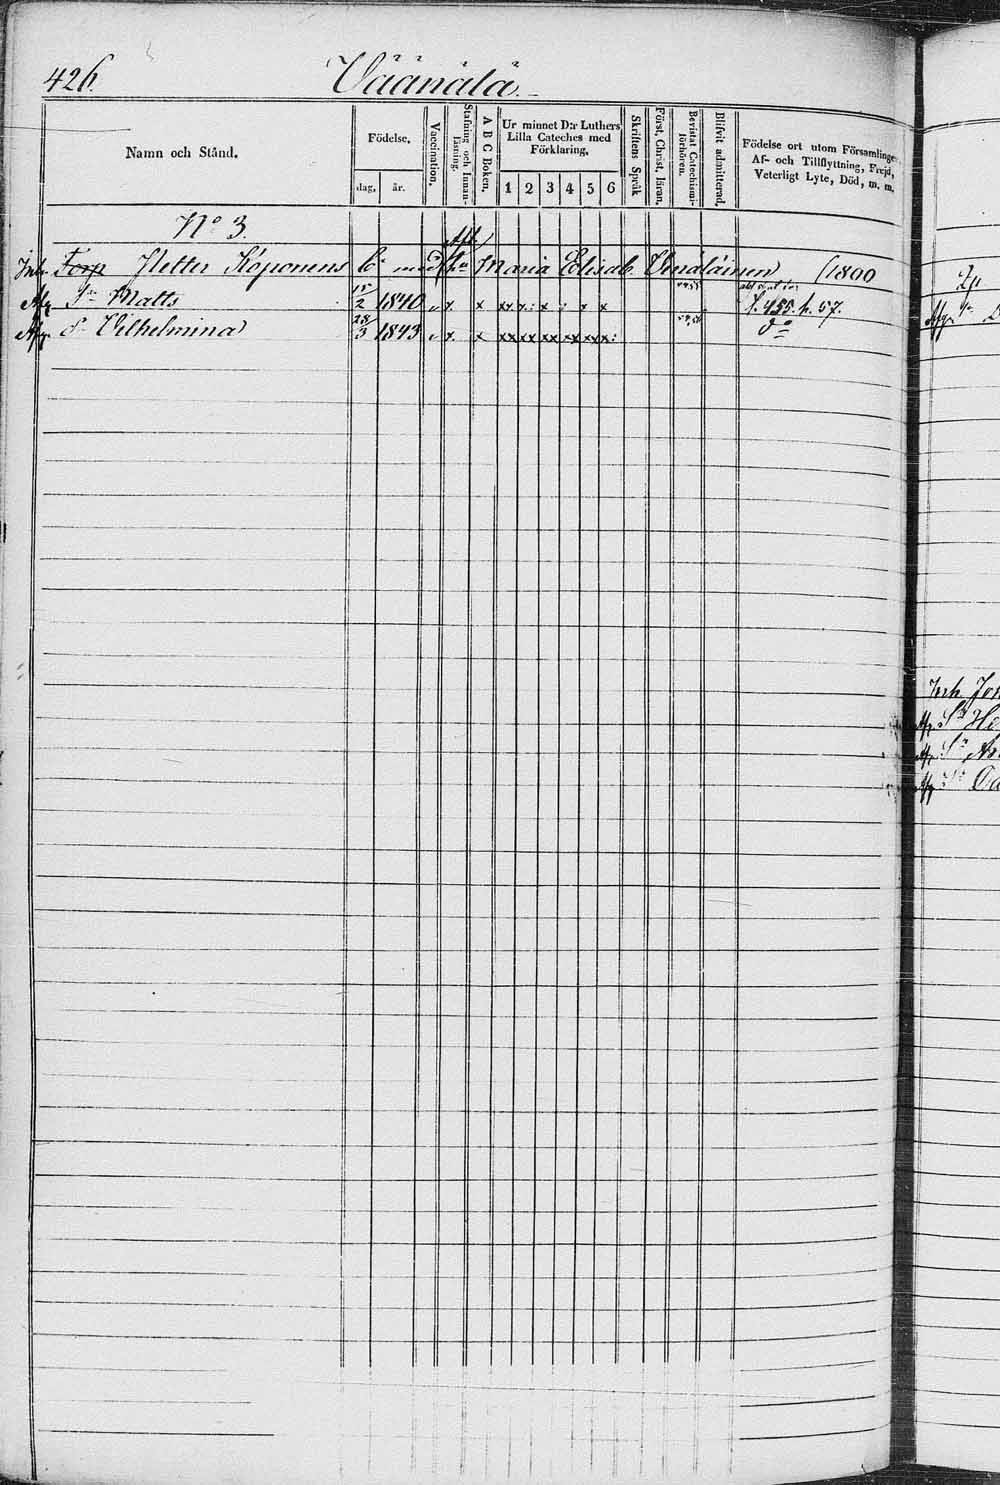 426. Väänälä.
Namn och Stånd.
Födelse.
dag. år.
Vaccination.
Stafning och Innanläsning.
A B C Boken.
Ur minnet D:r Luthers
Lilla Cateches med
Förklaring.
1 2 3 4 5 6
Skriftens Språk
Först. Christ. läran.
Bevistat Catechismiförhören.
Blifvit admitterad.
Födelse ort utom Församlingen,
Af- och Tillflyttning, Frejd,
Veterligt Lyte, Död, m. m.
No 3.
Inh. Torp Petter Köponens Maria Elisab. Venäläinen (1800
Sn Matts 15/2 1840 S. 455. p. 57.
Dr Vilhelmina 28/3 1843 do
Inh. Jon